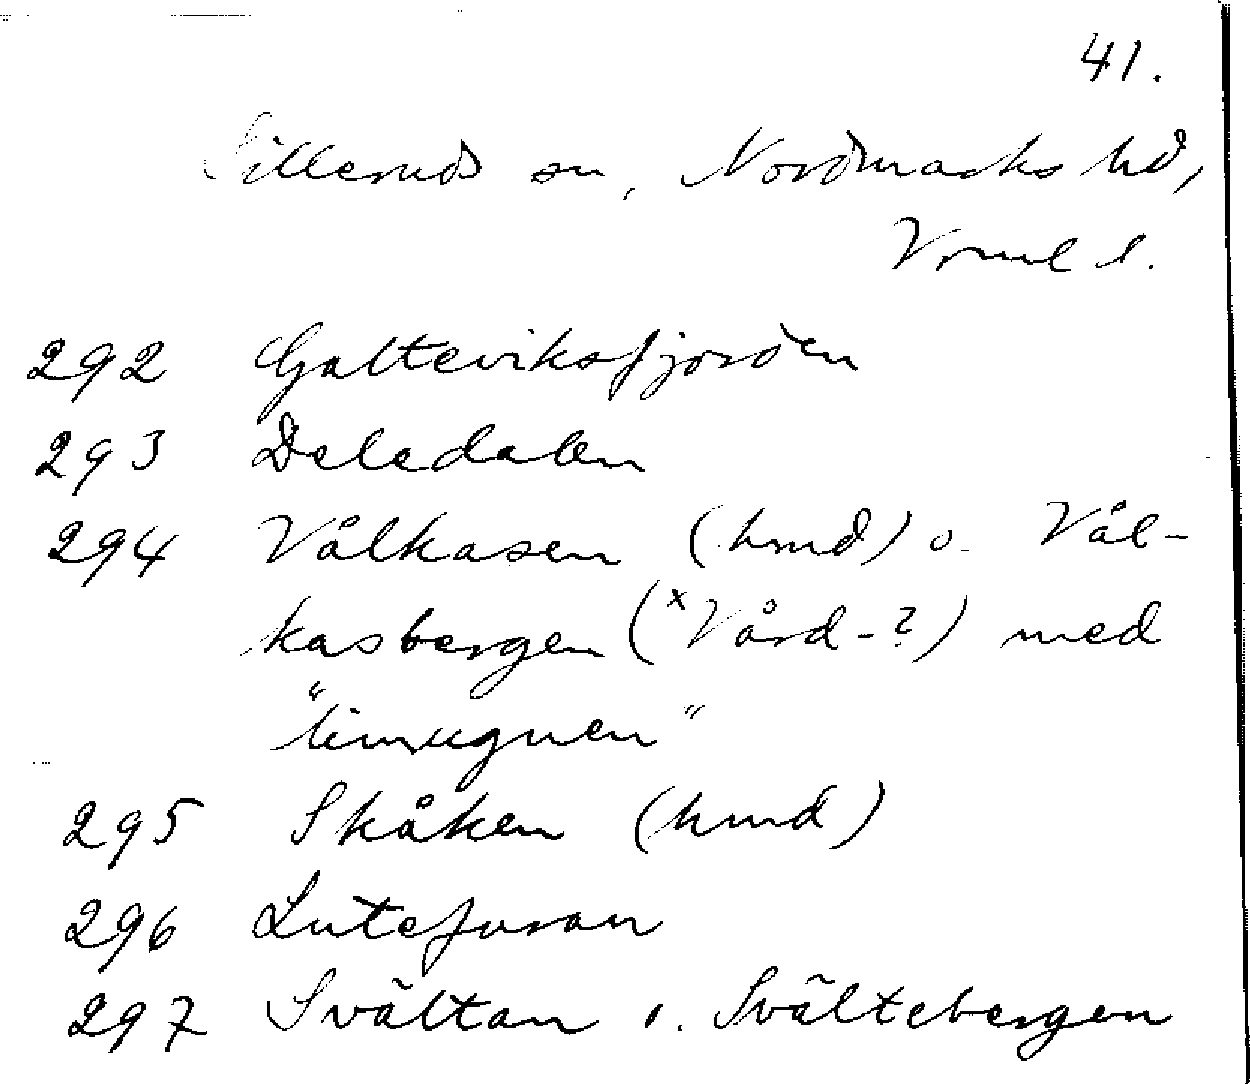 41.
Silleruds sn, Nordmarks hd,
Vrml l.
292 Galteviksfjorden
293 Deledalen
294 Vålkasen (hmd) o. Vål-
kasbergen (ˣVård-?) med
"limugnen"
295 Skåken (hmd)
296 Lutefuran
297 Svältan o. Svältebergen